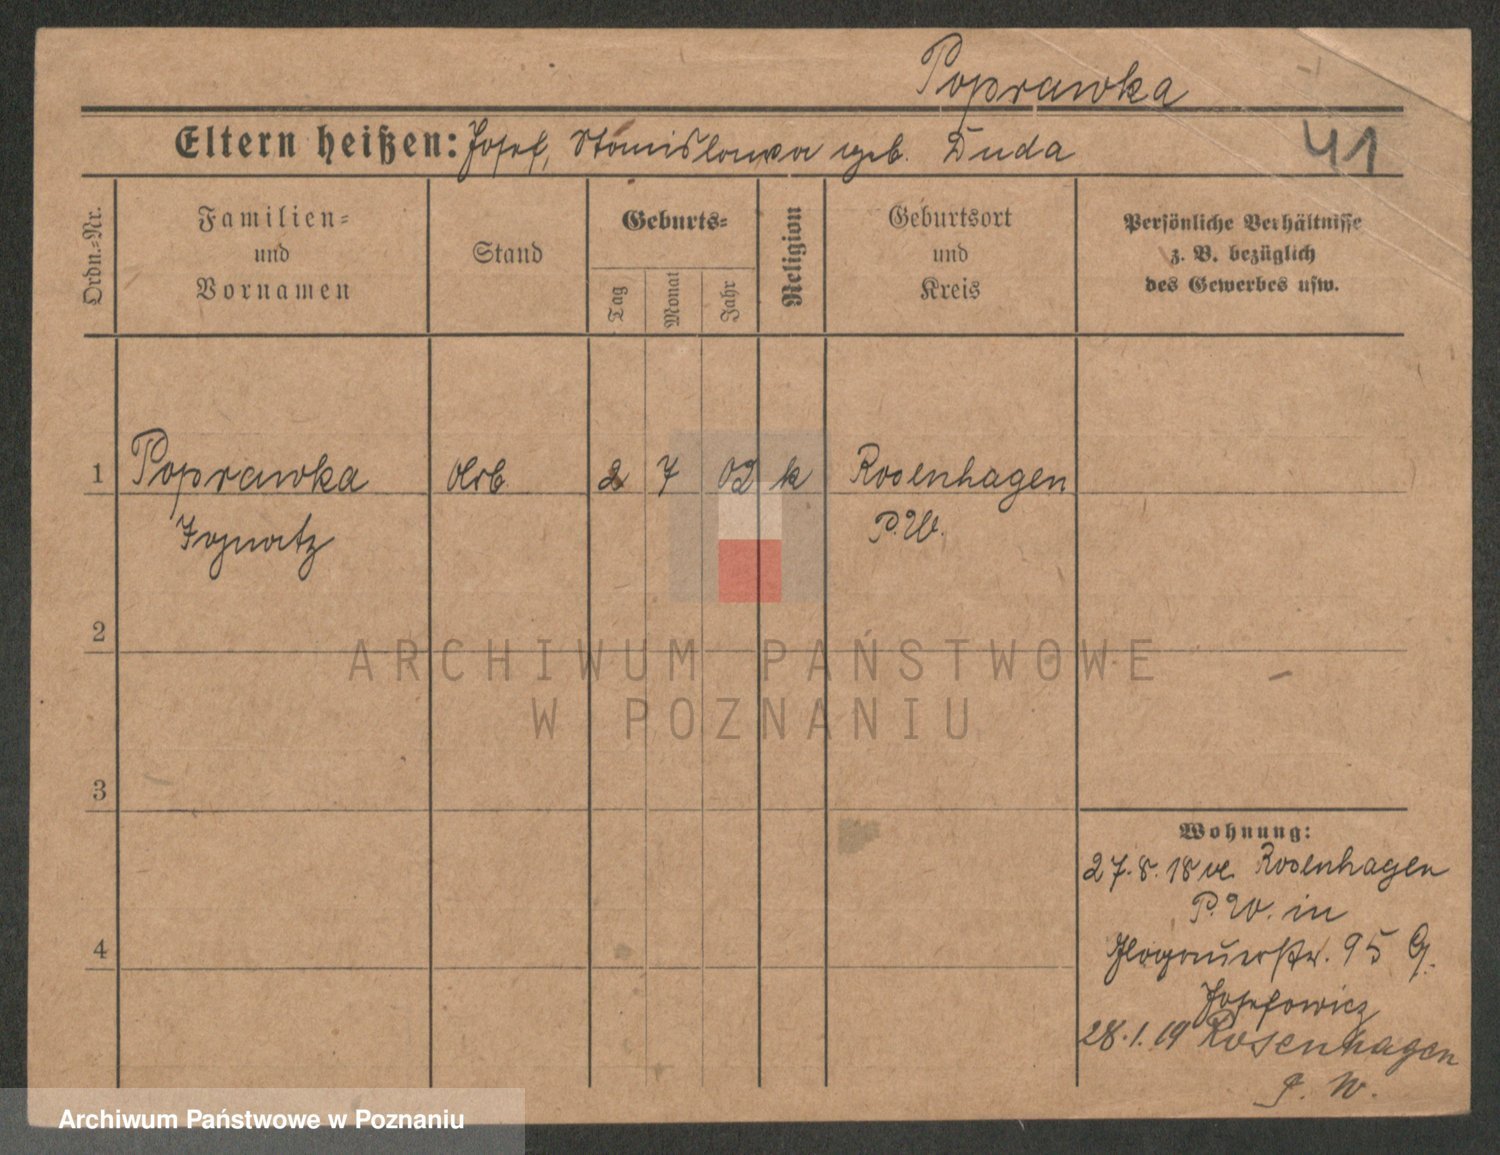 Poprawka
Eltern heißen: Josef, Stanislawa geb. Duda
41
Ordn.-Nr.
Familien-
und
Vornamen
Stand
Geburts-
Tag
Monat
Jahr
Religion
Geburtsort
und
Kreis
Persönliche Verhältnisse
z. B. bezüglich
des Gewerbes usw.
1 Poprawka Arb. 2 7 02 k Rosenhagen
Ignatz P.W.
2
ARCHIWUM PAŃSTWOWE
W POZNANIU
3
Wohnung:
27.8.18 Rosenhagen
P.W. in
Glogauerstr. 95 G.
4
Josefowicz
28.1.19 Rosenhagen
P. W.
Archiwum Państwowe w Poznaniu